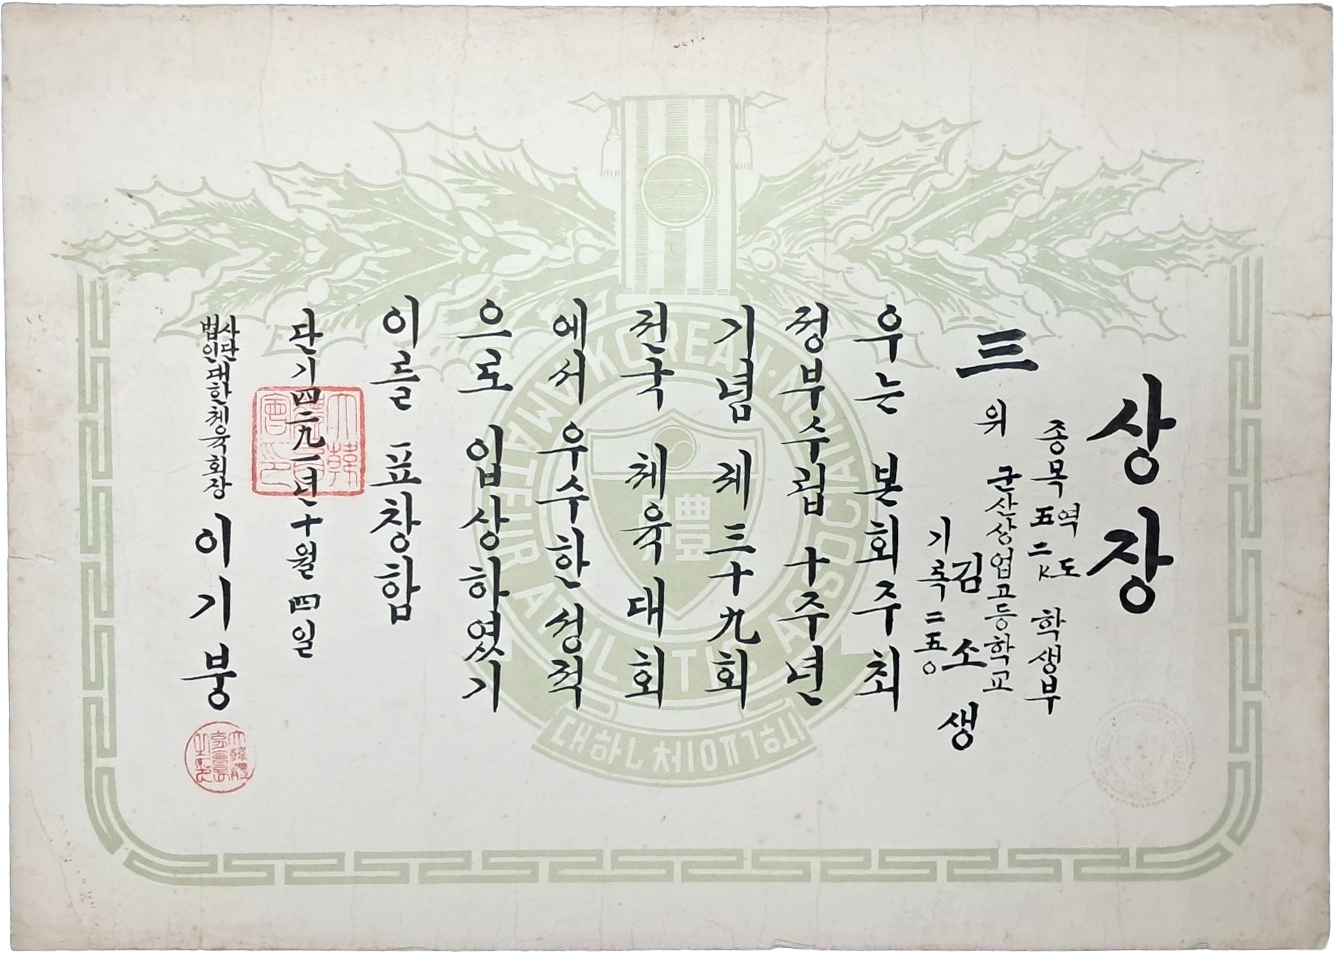 상장
종목 역도 五二K 학생부
三위 군산상업고등학교
김소생
기록 二五○
우는 본회주최
정부수립 十주년
기념 제三十九회
전국 체육대회
에서 우수한 성적
으로 입상하였기
이를 표창함
단기四二九一년十월四일
사단법인대한체육회장 이기붕
KOREAN AMATEUR ATHLETIC ASSOCIATION
禮
대하ㄴ체ㅇㅠㄱ회